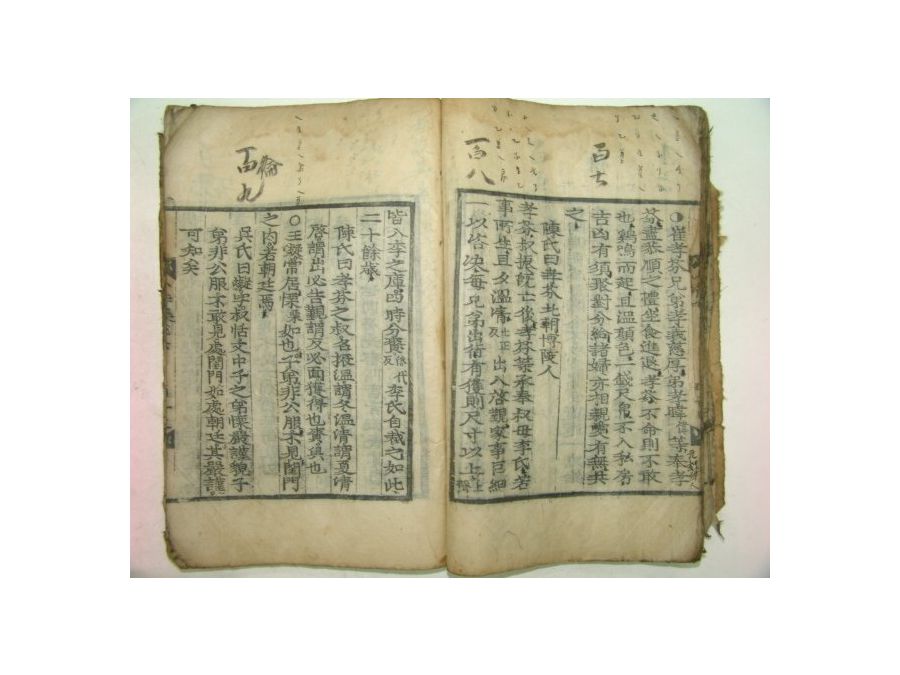 百七
百八
○崔孝芬兄弟孝義慈厚弟孝暐偉等奉孝
芬盡恭順之禮坐食進退孝芬不命則不敢
也鷄鳴而起且溫顔色一錢尺帛不入私房
吉凶有須聚對分給諸婦亦相親愛有無共
之
陳氏曰孝芬北朝博陵人
孝芬叔振旣亡後孝芬等承奉叔母李氏若
事所生旦夕溫凊七正反出入啓覲家事巨細
一以咨決每兄弟出行有獲則尺寸以上上聲
百九
倫
皆入李之庫四時分賚徠代反李氏自裁之如此
二十餘歲
陳氏曰孝芬之叔名振溫謂冬溫凊謂夏凊
啓謂出必告覲謂反必面獲得也賚與也
○王凝常居慄栗如也子弟非公服不見閨門
之內若朝廷焉
吳氏曰凝字叔恬文中子之弟慄嚴謹貌子
弟非公服不敢見處閨門如處朝廷其嚴謹
可知矣